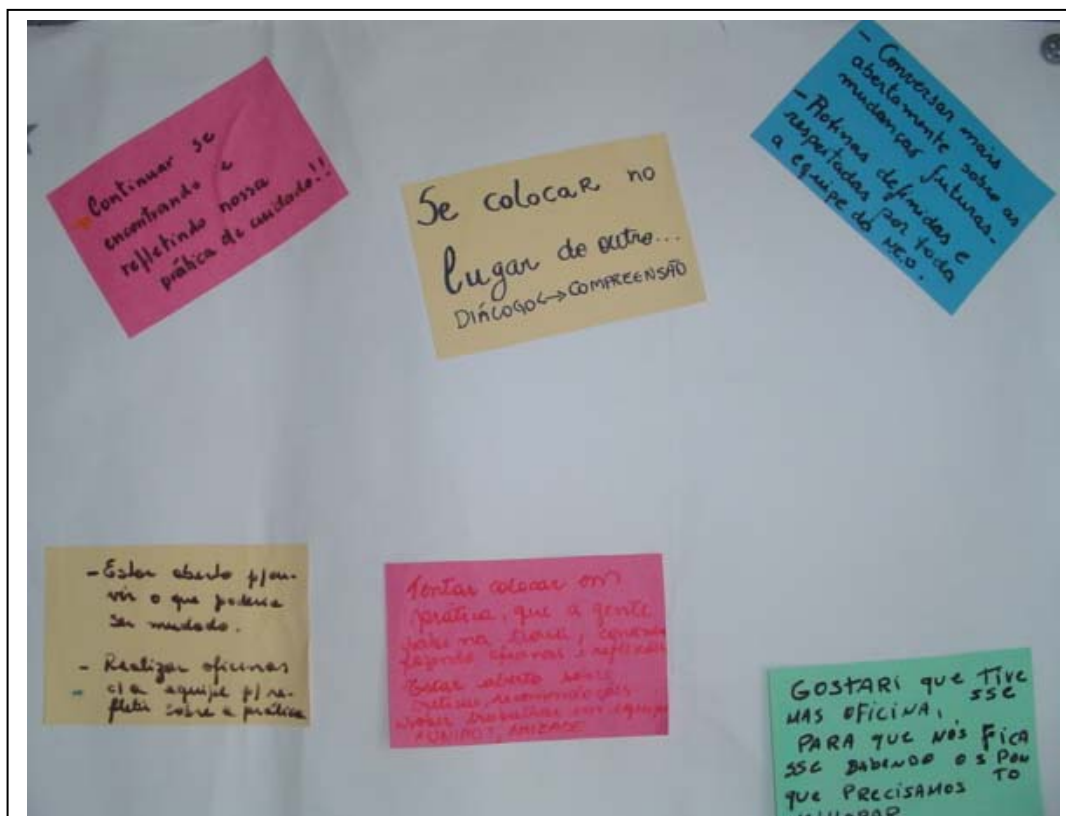 Continuar se
encontrando e
refletindo nossa
prática de cuidado!!
Se colocar no
lugar do outro...
DIÁLOGO ↔ COMPREENSÃO
- Conversar mais
abertamente sobre as
mudanças futuras.
- Rotinas definidas e
respeitadas por toda
a equipe do
- Estar aberto p/ ou-
vir o que poderia
ser mudado.
- Realizar oficinas
c/ a equipe p/ re-
fletir sobre a prática
Tentar colocar em
prática, que a gente
sabe na
fazendo oficinas e reflexão
Estar aberto sobre
críticas, recomendações
saber trabalhar em equipe
AMIZADE
GOSTARI que TIVE
SSE
MAS OFICINA,
PARA QUE NÓS FICA
SSE SABENDO OS PON
TO
QUE PRECISAMOS